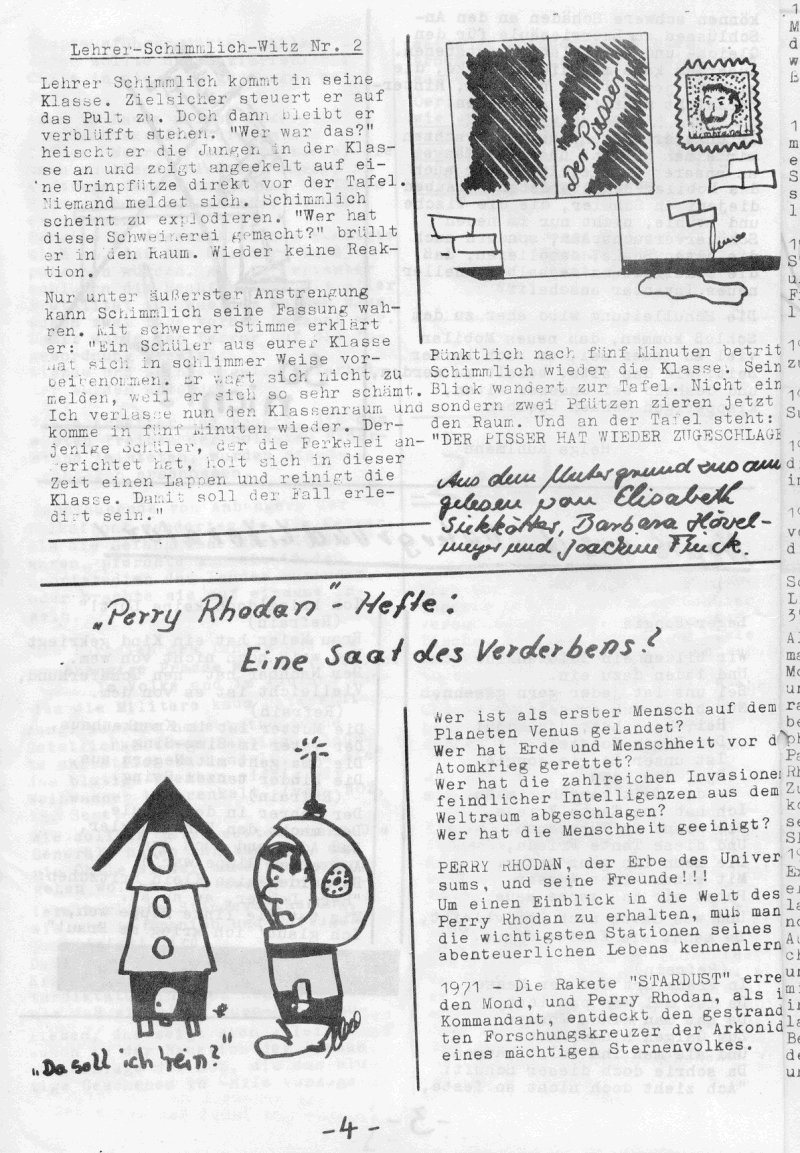 Lehrer-Schimmlich-Witz Nr. 2
Lehrer Schimmlich kommt in seine
Klasse. Zielsicher steuert er auf
das Pult zu. Doch dann bleibt er
verblüfft stehen. "Wer war das?"
heischt er die Jungen in der Klas-
se an und zeigt angeekelt auf ei-
'ne Urinpfütze direkt vor der Tafel.
Niemand meldet sich. Schimmlich
scheint zu explodieren. "Wer hat
diese Schweinerei gemacht?" brüllt
er in den Raum. Wieder keine Reak-
tion.
Nur unter äußerster Anstrengung
kann Schimmlich seine Fassung wah-
ren. Mit schwerer Stimme erklärt
er: "Ein Schüler aus eurer Klasse
hat sich in schlimmer Weise vor-
beibenommen. Er wagt sich nicht zu
melden, weil er sich so sehr schämt.
Ich verlasse nun den Klassenraum und
komme in fünf Minuten wieder. Der-
jenige Schüler, der die Ferkelei an-
gerichtet hat, holt sich in dieser
Zeit einen Lappen und reinigt die
Klasse. Damit soll der Fall erle-
digt sein."
Der Pisser
Pünktlich nach fünf Minuten betrit
Schimmlich wieder die Klasse. Sein
Blick wandert zur Tafel. Nicht ein
sondern zwei Pfützen zieren jetzt
den Raum. Und an der Tafel steht:
"DER PISSER HAT WIEDER ZUGESCHLAGE
Aus dem Untergrund
gelesen von Elisabeth
Barbara Hövel-
meyer und Joachim Flick.
"Perry Rhodan"-Hefte:
Eine Saat des Verderbens?
"Da soll ich rein?"
Wer ist als erster Mensch auf dem
Planeten Venus gelandet?
Wer hat Erde und Menschheit vor d
Atomkrieg gerettet?
Wer hat die zahlreichen Invasione
feindlicher Intelligenzen aus dem
Weltraum abgeschlagen?
Wer hat die Menschheit geeinigt?
PERRY RHODAN, der Erbe des Univer
sums, und seine Freunde!!!
Um einen Einblick in die Welt des
Perry Rhodan zu erhalten, muß man
die wichtigsten Stationen seines
abenteuerlichen Lebens kennenlern
1971 - Die Rakete "STARDUST" erre
den Mond, und Perry Rhodan, als i
Kommandant, entdeckt den gestrand
ten Forschungskreuzer der Arkonid
eines mächtigen Sternenvolkes.
-4-